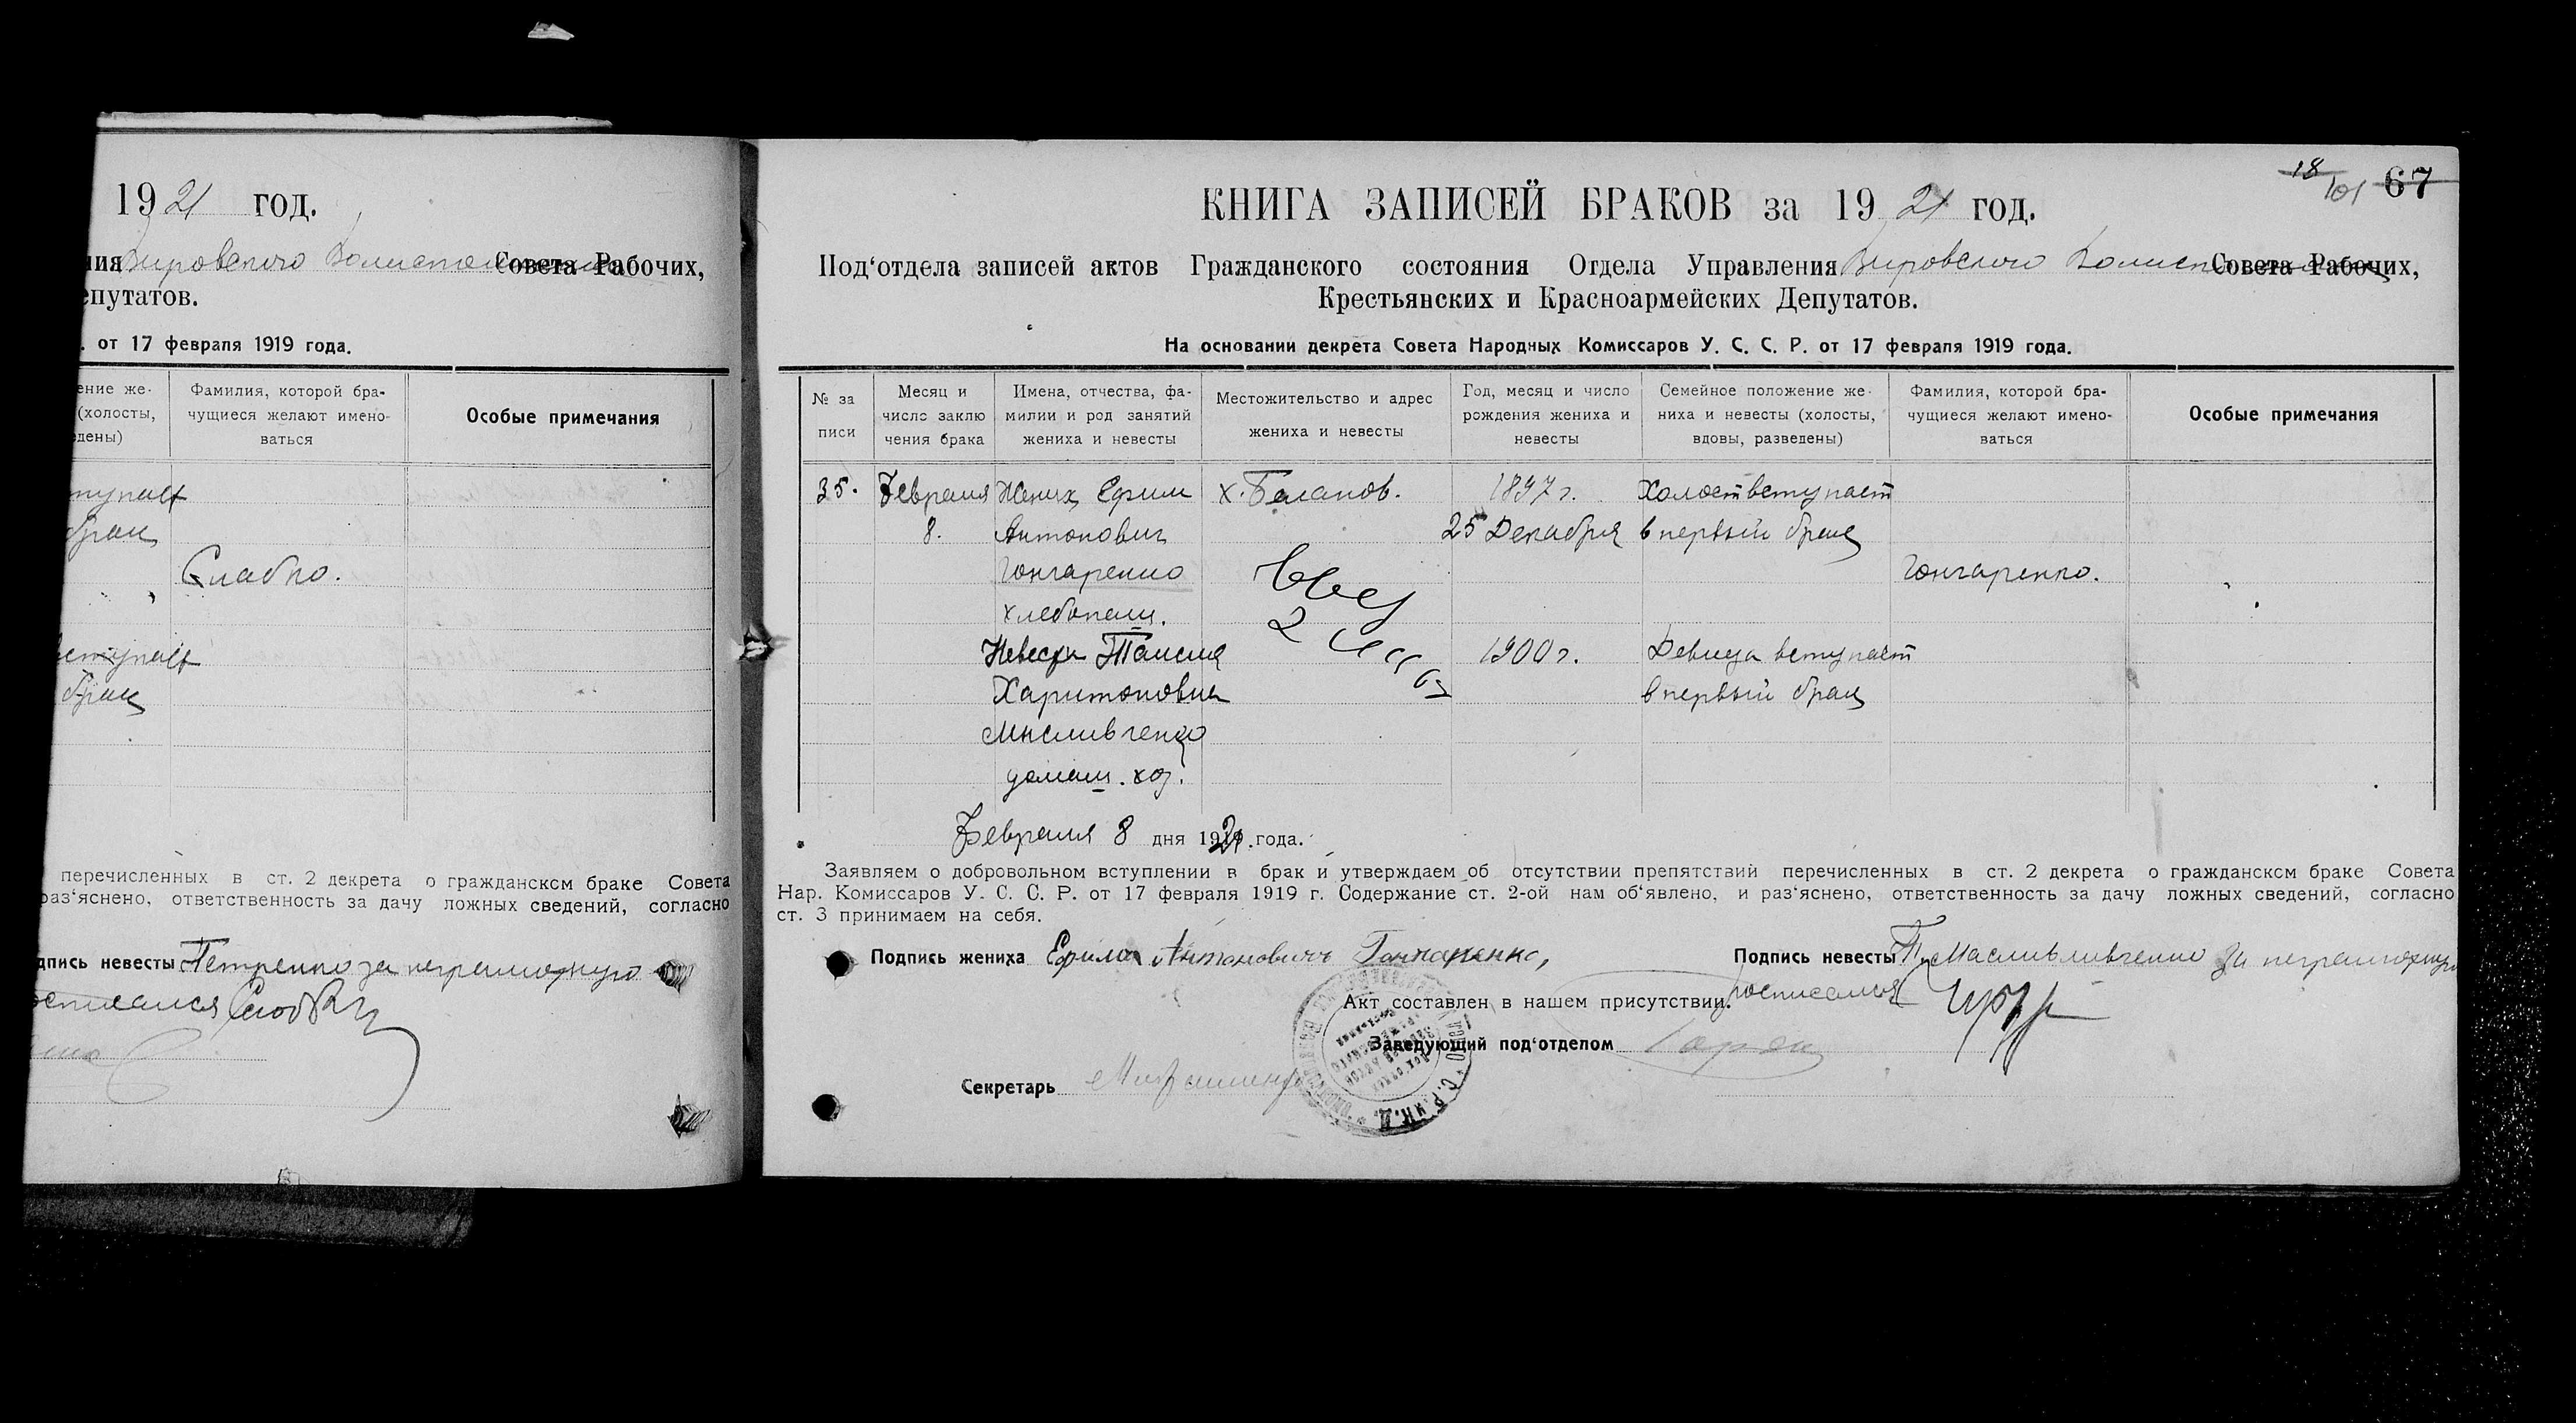 1921 год.
Вировского Волисполкома Совета Рабочих,
епутатов.
. от 17 февраля 1919 года.
ение же-
(холосты,
едены)
Фамилия, которой бра-
чущиеся желают имено-
ваться
Особые примечания
брак
Слабко.
брак
перечисленных в ст. 2 декрета о гражданском браке Совета
раз‘яснено, ответственность за дачу ложных сведений, согласно
дпись невесты Петренко за неграмотную
18
101
67
КНИГА ЗАПИСЕЙ БРАКОВ за 1921 год.
Под‘отдела записей актов Гражданского состояния Отдела Управления Вировского Волисп Совета Рабочих,
Крестьянских и Красноармейских Депутатов.
На основании декрета Совета Народных Комиссаров У. С. С. Р. от 17 февраля 1919 года.
№ за
писи
Месяц и
число заклю
чения брака
Имена, отчества, фа-
милии и род занятий
жениха и невесты
Местожительство и адрес
жениха и невесты
Год, месяц и число
рождения жениха и
невесты
Семейное положение же-
ниха и невесты (холосты,
вдовы, разведены)
Фамилия, которой бра-
чущиеся желают имено-
ваться
Особые примечания
35. Февраля Жених Ефим х. Баланов. 1897 г. Холост вступает
8. Антонович 25 Декабря в первый брак
Гончаренко Гончаренко.
хлебопаш.
Невеста Таисия 1900 г. Девица вступает
Харитоновна в первый брак
Мисливченко
домаш. хоз.
Февраля 8 дня 1921 года.
Заявляем о добровольном вступлении в брак и утверждаем об отсутствии препятствий перечисленных в ст. 2 декрета о гражданском браке Совета
Нар. Комиссаров У. С. С. Р. от 17 февраля 1919 г. Содержание ст. 2-ой нам об‘явлено, и раз‘яснено, ответственность за дачу ложных сведений, согласно
ст. 3 принимаем на себя.
Подпись жениха Ефим Антоновичъ Гончаренко,
Подпись невесты Т. за неграмотную
росписался
Акт составлен в нашем присутствии.
Заведующий под‘отделом
Секретарь